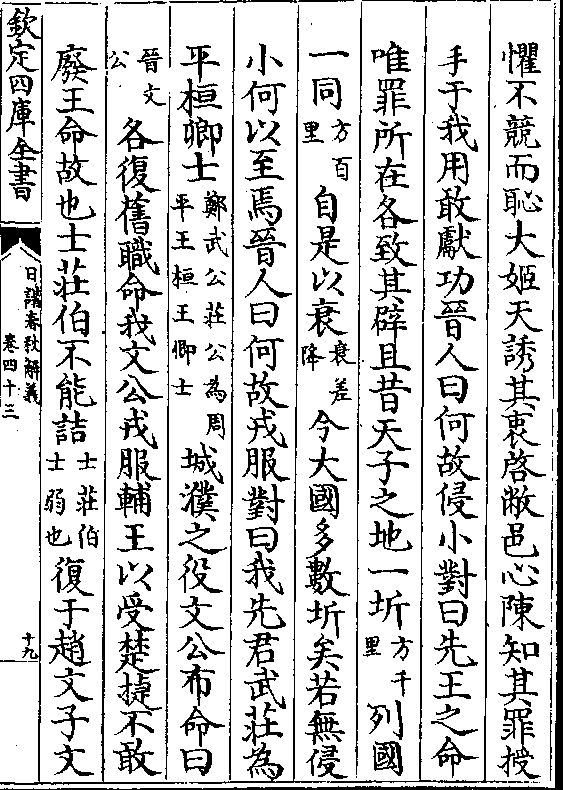 懼不競而恥大姬天誘其衷啓敝邑心陳知其罪授
手于我用敢獻功晉人曰何故侵小對曰先王之命
唯罪所在各致其辟且昔天子之地一圻方千里列國
一同方百里自是以衰衰差降今大國多數圻矣若無侵
小何以至焉晉人曰何故戎服對曰我先君武莊為
平桓卿士鄭武公莊公為周平王桓王卿士城濮之役文公布命曰
晉文公各復舊職命我文公戎服輔王以受楚捷不敢
廢王命故也士莊伯不能詰士莊伯士弱也復于趙文子文
欽定四庫全書
日講春秋解義
卷四十三
十九